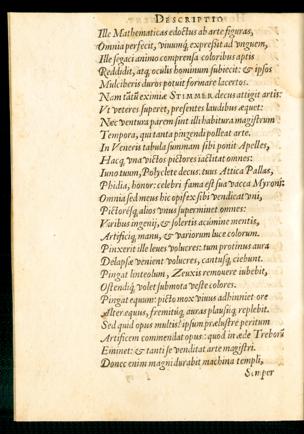 DESCRIPTIO
Ille Mathematicas edoctus ab arte figuras,
Omnia perfecit, viuumq́; expreßit ad vnguem,
Ille segaci animo comprensa coloribus aptis
Reddidit, atq́; oculis hominum subiecit: & ipsos
Mulciberis duros potuit formare lacertos.
Nam tātū eximiæ STIMMER decus attigit artis:
Vt veteres superet, presentes laudibus æquet:
Nec ventura parem sint illi habitura magistrum
Tempora, qui tanta pingendi polleat arte.
In Veneris tabula summam sibi ponit Apelles,
Hacq́; vna victos pictores iactitat omnes:
Iuno tuum, Polyclete decus: tuus Attica Pallas,
Phidia, honor: celebri fama est sua vacca Myroni:
Omnia sed meus hic opifex sibi vendicat vni,
Pictoresq́; alios vnus supereminet omnes:
Varibus ingenij, & solertis acumine mentis,
Artificiq́; manu, & variorum luce colorum.
Pinxerit ille leues volucres: tum protinus aura
Delapsæ venient volucres, cantusq́; ciebunt.
Pingat linteolum, Zeuxis remouere iubebit,
Ostendiq́; volet submota veste colores.
Pingat equum: picto mox viuus adhinniet ore
Alter equus, fremituq́; auras plausuq́; replebit.
Sed quid opus multis? ipsum prælustre peritum
Artificem commendat opus: quod in æde Treborū
Eminet: & tanti se venditat arte magistri.
Donec enim magni durabit machina templi,
Semper